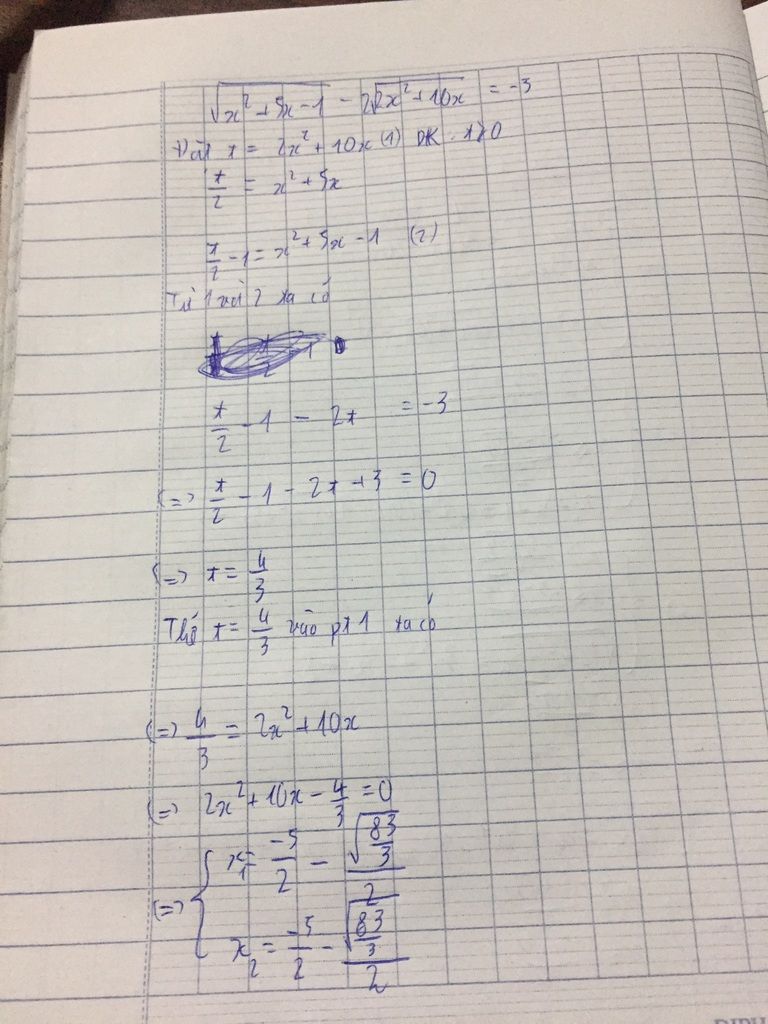 √(x² + 5x - 1) - 2√(2x² + 10x) = -3
Đặt t = 2x² + 10x (1) ĐK: t ≥ 0
t/2 = x² + 5x
t/2 - 1 = x² + 5x - 1 (2)
Từ 1 và 2 ta có
t/2 - 1 - 2t = -3
(=) t/2 - 1 - 2t + 3 = 0
(=) t = 4/3
Thế t = 4/3 vào pt 1 ta có
(=) 4/3 = 2x² + 10x
(=) 2x² + 10x - 4/3 = 0
(=) { x₁ = -5/2 - √(83/3)/2
x₂ = -5/2 - √(83/3)/2